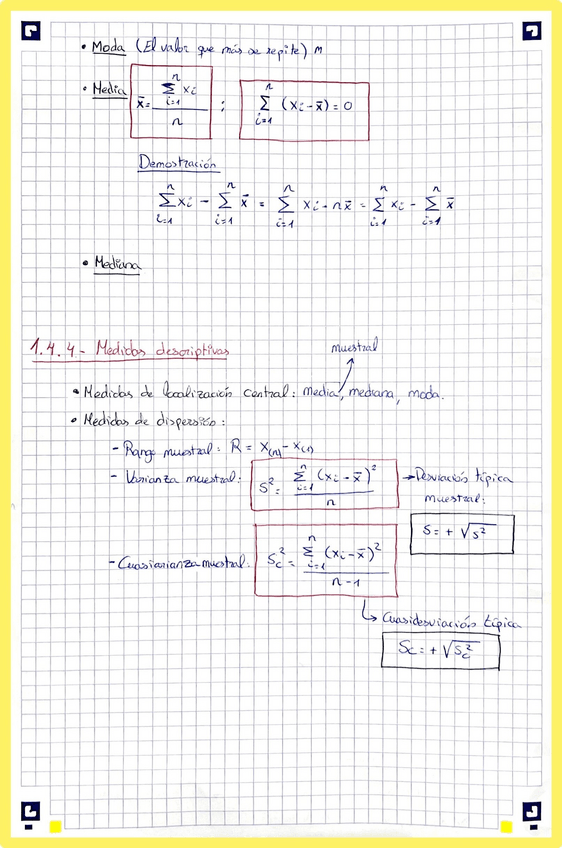 • Moda (El valor que más se repite) M
• Media x̄ = Σ_{i=1}^{n} xi / n ; Σ_{i=1}^{n} (xi - x̄) = 0
Demostración
Σ_{i=1}^{n} xi - Σ_{i=1}^{n} x̄ = Σ_{i=1}^{n} xi - n x̄ = Σ_{i=1}^{n} xi - Σ_{i=1}^{n} x̄
• Mediana
1.4.4 - Medidas descriptivas
muestral
• Medidas de localización central: media, mediana, moda.
• Medidas de dispersión:
- Rango muestral: R = X(n) - X(1)
- Varianza muestral: S² = Σ_{i=1}^{n} (xi - x̄)² / n → Desviación típica
muestral:
S = + √S²
- Cuasivarianza muestral: Sc² = Σ_{i=1}^{n} (xi - x̄)² / n-1
↳ Cuasidesviación típica
Sc = + √Sc²